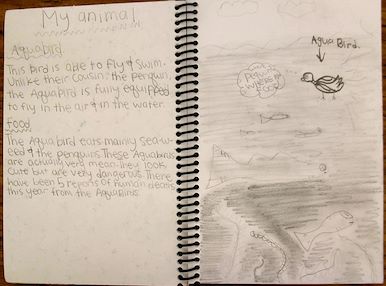 My animal
Aquabird
This bird is able to fly & swim.
Unlike their cousin, the penguin,
the AquaBird is fully equipped
to fly in the air & in the water.
Food
The Aqua bird eats mainly sea-w-
eed & the penguins. These Aquabirds
are actually very mean. They look
cute but are very dangerous. There
have been 5 reports of human deaths
this year from the AquaBirds.
Aqua Bird.